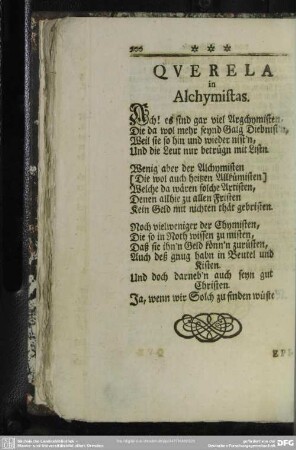 300 * * *
QVERELA
in
Alchymistas.
Ach! es sind gar viel Argchymisten,
Die da wol mehr seynd Galg Diebnisten,
Weil sie so hin und wieder nist'n,
Und die Leut nur betrügn mit Listn.
Wenig aber der Alchymisten
[Die wol auch heissen Allkümisten]
Welche da wären solche Artisten,
Denen allhie zu allen Fristen
Kein Geld mit nichten thät gebristen.
Noch vielweniger der Chymisten,
Die so in Noth wissen zu misten,
Daß sie ihn'n Geld könn'n zurüsten,
Auch deß gnug habn in Beutel und
Kisten.
Und doch darneb'n auch seyn gut
Christen.
Ja, wenn wir Solch zu finden wüste